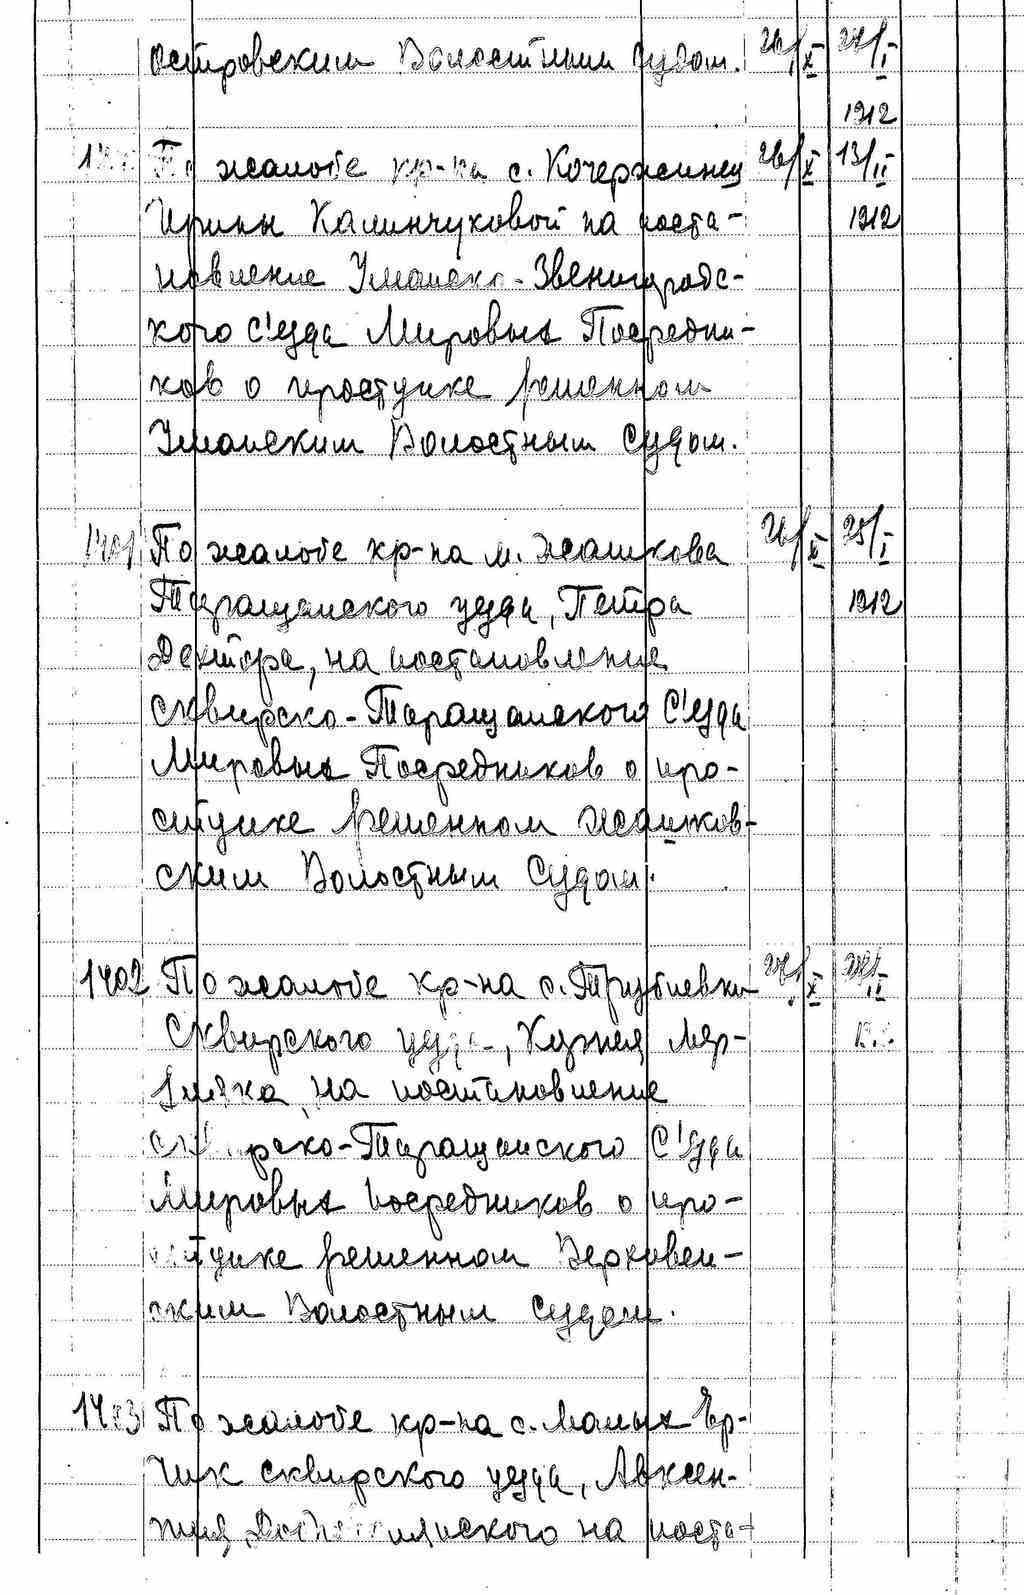 островским Волостным Судом. 26/X 24/I
1912
По жалобе кр-ки с. Кочержинец 26/X 13/II
Ирины Калинчуковой на поста- 1912
новление Уманско-Звенигородс-
кого С'езда Мировых Посредни-
ков о проступке решенном
Уманским Волостным Судом.
1401 По жалобе кр-на м. Жашкова 26/X 25/I
Таращанского уезда, Петра 1912
Дектора, на постановление
Сквирско-Таращанского С'езда
Мировых Посредников о про-
ступке решенном Жашков-
ским Волостным Судом.
1402 По жалобе кр-на с. Трубиевки
Сквирского уезда, Кузьмы
на постановление
Сквирско-Таращанского С'езда
Мировых Посредников о про-
ступке решенном
ским Волостным Судом.
1403 По жалобе кр-на с. Малых Ер-
чик Сквирского уезда, Авксен-
тия на поста-